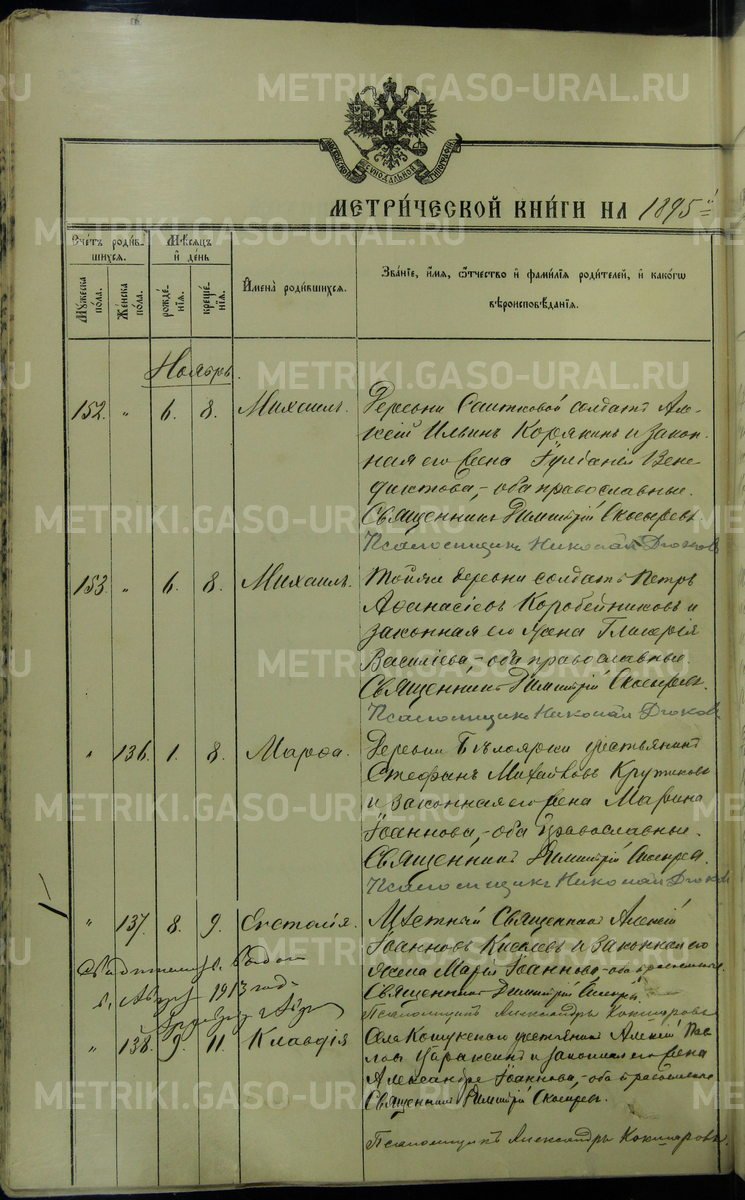 METRIKI.GASO-URAL.RU
МЕТРИ́ЧЕСКОЙ КНИ́ГИ НА 1895
Сче́тъ роди́в-
шихся.
Мѣ́сяцъ
и҆ де́нь
Му́жеска по́ла.
Же́нска по́ла.
рожде́-
нїѧ.
креще́-
нїѧ.
И҆мена̀ роди́вшихся.
Зва́нїе, и҆́мѧ, ѻ҆́тчество и҆ фами́лїѧ роди́телей, и҆ како́гѡ
вѣроисповѣ́данїѧ.
Ноябрь.
152. " 6. 8. Михаилъ. Деревни солдатъ Але-
ксій Ильинъ Корякинъ и закон-
ная его жена Іуліанія Вене-
диктова, - оба православные.
Священникъ Димитрій Скосыревъ.
Псаломщикъ Николай
153. " 6. 8. Михаилъ. Тойже деревни солдатъ Петръ
Афанасіевъ Коробейниковъ и
законная его жена Гликерія
Василіева, - оба православные.
Священникъ Димитрій Скосыревъ.
Псаломщикъ Николай
" 136. 1. 8. Марѳа. Деревни Бѣлоярки крестьянинъ
Стефанъ Михайловъ Крутиковъ
и законная его жена Марина
Іоаннова, - оба православные.
Священникъ Димитрій Скосыревъ.
Псаломщикъ Николай
" 137. 8. 9. Евстолія. Мѣстный Священникъ Алексій
Іоанновъ Киселевъ и законная его
жена Марія Іоаннова - оба православные.
Священникъ Димитрій Скосыревъ.
Псаломщикъ Александръ Кокшаровъ
1913 года
" 138. 9. 11. Клавдія Села Кошукскаго крестьянинъ Алексій Пав-
ловъ и законная его жена
Александра Іоаннова, - оба православные
Священникъ Димитрій Скосыревъ.
Псаломщикъ Александръ Кокшаровъ